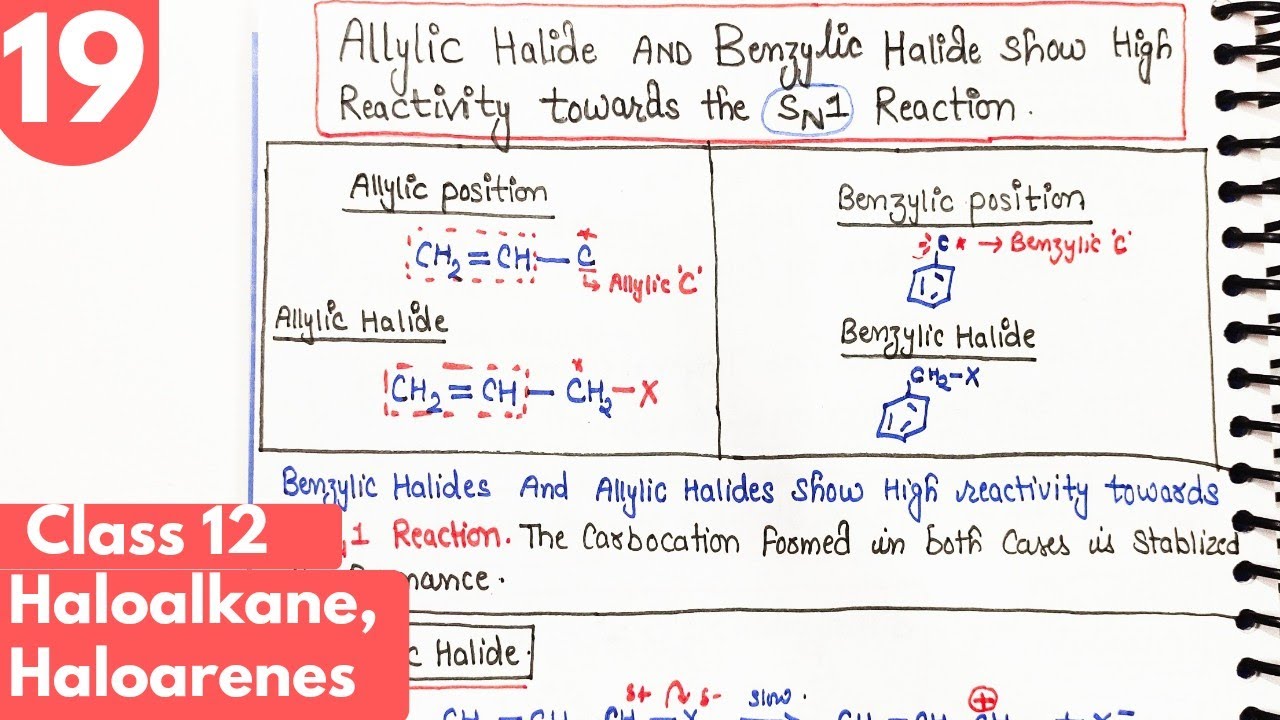 19
Allylic Halide AND Benzylic Halide show High
Reactivity towards the SN1 Reaction.
Allylic position
CH2=CH—C*
↳ Allylic 'C'
Allylic Halide
CH2=CH—C*H2—X
Benzylic position
C* → Benzylic 'C'
Benzylic Halide
CH2-X
Benzylic Halides And Allylic Halides show High reactivity towards
1 Reaction. The Carbocation Formed in both Cases is Stablized
nance.
c Halide.
δ+ δ- slow. ⊕
Class 12
Haloalkane,
Haloarenes